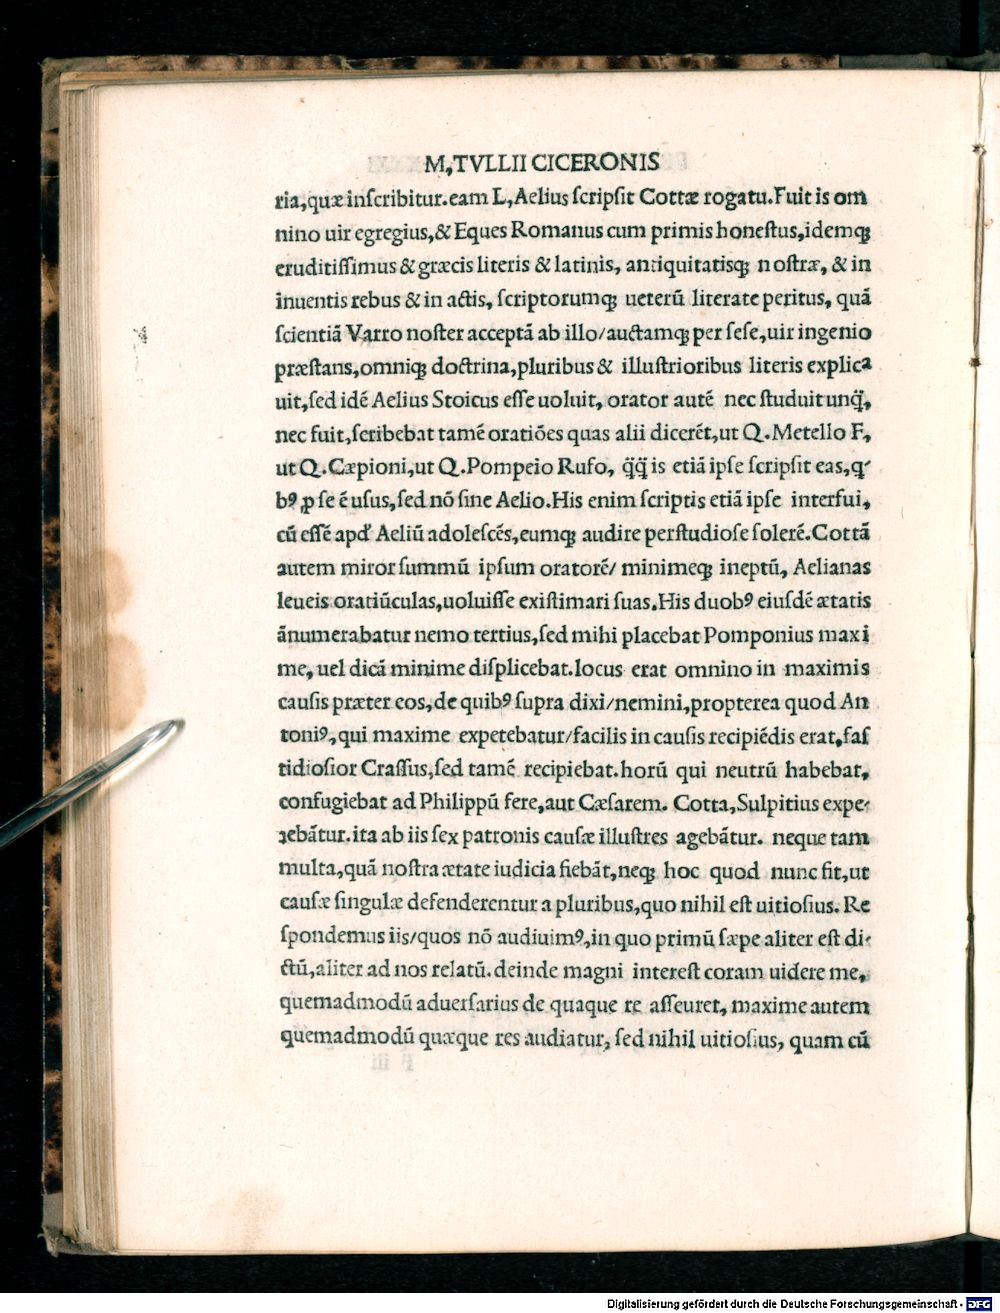 M,TVLLII CICERONIS
ria,quæ inſcribitur.eam L,Aelius ſcripſit Cottæ rogatu.Fuit is om
nino uir egregius,& Eques Romanus cum primis honeſtus,idemqꝫ
eruditiſſimus & græcis literis & latinis, antiquitatisqꝫ noſtræ, & in
inuentis rebus & in actis, ſcriptorumqꝫ ueterū literate peritus, quā
ſcientiā Varro noſter acceptā ab illo/auctamqꝫ per ſeſe,uir ingenio
præſtans,omniqꝫ doctrina,pluribus & illuſtrioribus literis explica
uit,ſed idē Aelius Stoicus eſſe uoluit, orator autē nec ſtuduit unq̈,
nec fuit,ſcribebat tamē oratiōes quas alii dicerēt,ut Q.Metello F,
ut Q.Cæpioni,ut Q.Pompeio Rufo, q̈q̈ is etiā ipſe ſcripſit eas,q⸗
bꝰ ꝓ ſe ē uſus,ſed nō ſine Aelio.His enim ſcriptis etiā ipſe interfui,
cū eſſē apđ Aeliū adoleſcēs,eumqꝫ audire perſtudioſe ſolerē.Cottā
autem miror ſummū ipſum oratorē/ minimeqꝫ ineptū, Aelianas
leueis oratiūculas,uoluiſſe exiſtimari ſuas.His duobꝰ eiuſdē ætatis
ānumerabatur nemo tertius,ſed mihi placebat Pomponius maxi
me, uel dicā minime diſplicebat.locus erat omnino in maximis
cauſis præter eos,de quibꝰ ſupra dixi/nemini,propterea quod An
toniꝰ,qui maxime expetebatur/facilis in cauſis recipiēdis erat,faſ
tidioſior Craſſus,ſed tamē recipiebat.horū qui neutrū habebat,
confugiebat ad Philippū fere,aut Cæſarem. Cotta,Sulpitius expe⸗
tebātur.ita ab iis ſex patronis cauſæ illuſtres agebātur. neque tam
multa,quā noſtra ætate iudicia fiebāt,neqꝫ hoc quod nunc fit,ut
cauſæ ſingulæ defenderentur a pluribus,quo nihil eſt uitioſius. Re
ſpondemus iis/quos nō audiuimꝰ,in quo primū ſæpe aliter eſt di⸗
ctū,aliter ad nos relatū.deinde magni intereſt coram uidere me,
quemadmodū aduerſarius de quaque re aſſeuret, maxime autem
quemadmodū quæque res audiatur, ſed nihil uitioſius, quam cū
Digitalisierung gefördert durch die Deutsche Forschungsgemeinschaft - DFG